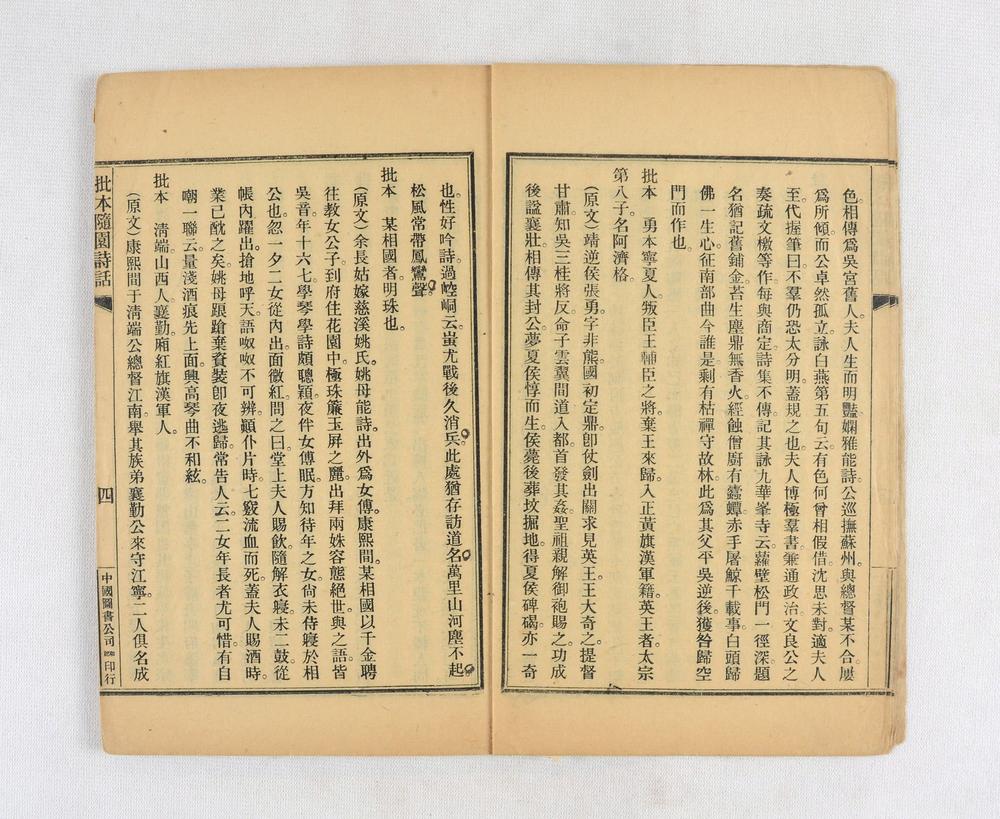 色。相傳爲吳宮舊人。夫人生而明豔。嫺雅能詩。公巡撫蘇州。與總督某不合。屢
爲所傾。而公卓然孤立。詠白燕第五句云。有色何曾相假借。沈思未對。適夫人
至。代握筆曰。不羣仍恐太分明。蓋規之也。夫人博極羣書。兼通政治。文良公之
奏疏文檄等作。每與商定。詩集不傳。記其詠九華峯寺云。蘿壁松門一徑深。題
名猶記舊鋪金。苔生塵鼎無香火。經蝕僧廚有蠹蟫。赤手屠鯨千載事。白頭歸
佛一生心。征南部曲今誰是。剩有枯禪守故林。此爲其父平吳逆後。獲咎歸空
門而作也。
批本　勇本寧夏人。叛臣王輔臣之將。棄王來歸。入正黃旗漢軍籍。英王者。太宗
第八子。名阿濟格。
（原文）靖逆侯張勇。字非熊。國初定鼎。卽仗劍出關。求見英王。王大奇之。提督
甘肅。知吳三桂將反。命子雲翼間道入都首發其姦。聖祖親解御袍賜之。功成
後諡襄壯。相傳其封公夢夏侯惇而生侯。薨後葬坟掘地。得夏侯碑碣。亦一奇
也。性好吟詩。過崆峒云。蚩尤戰後久消兵。此處猶存訪道名。萬里山河塵不起。
松風常帶鳳鸞聲。
批本　某相國者。明珠也。
（原文）余長姑嫁慈溪姚氏。姚母能詩。出外爲女傅。康熙間。某相國以千金聘
往教女公子。到府住花園中。極珠簾玉屏之麗。出拜兩姝。容態絕世。與之語。皆
吳音。年十六七。學琴學詩頗聰穎。夜伴女傅眠。方知待年之女。尙未侍寢於相
公也。忽一夕二女從內出。面微紅。問之。曰。堂上夫人賜飮。隨解衣寢。未二鼓。從
帳內躍出。搶地呼天。語呶呶不可辨。顚仆片時。七竅流血而死。蓋夫人賜酒時。
業已酖之矣。姚母踉蹌棄資裝卽夜逃歸。常告人云。二女年長者尤可惜。有自
嘲一聯云。量淺酒痕先上面。興高琴曲不和絃。
批本　淸端。山西人。襄勤。廂紅旗漢軍人。
（原文）康熙間于淸端公總督江南。舉其族弟襄勤公來守江寧。二人俱名成
批本隨園詩話
四
中國圖書公司
印行